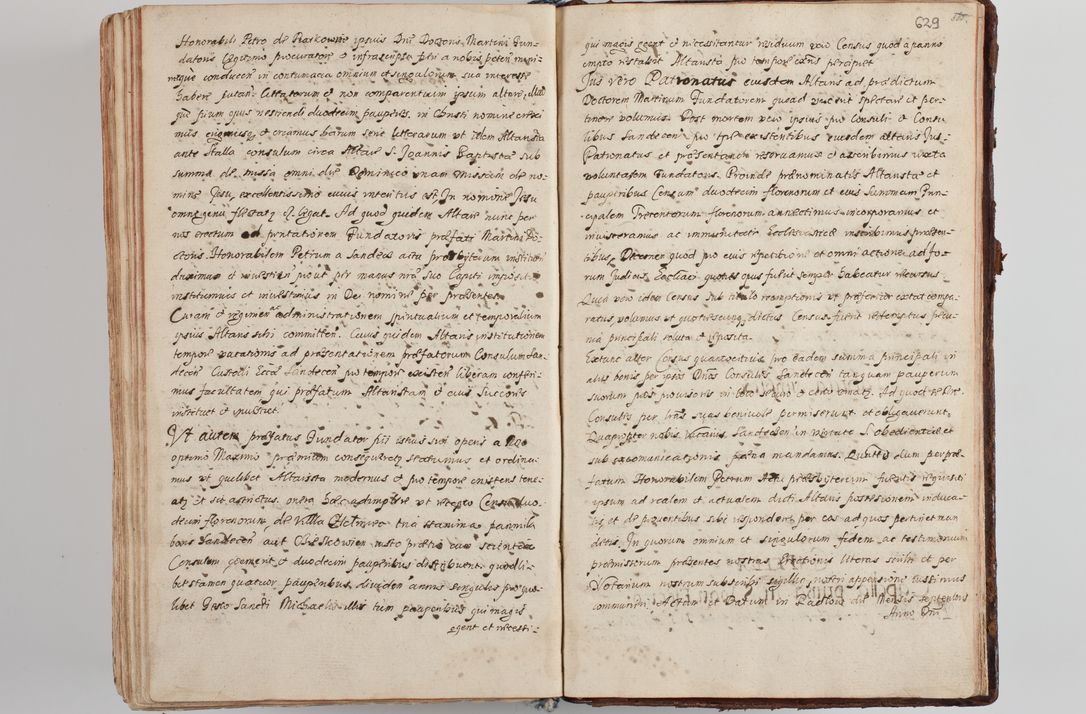 Honorabili Petro de Piarkowic ipsius Dni Doctoris Martini Fun-
datoris legitimo procuratori et infrascripta per a nobis peten
conducen in contumacia omnium et singulorum sua interesse
habere putan litteratorum et non comparentium ipsum altare
pium opus vestiendi duodecim pauperes in Christi nomine
mus et creamus harum serie litterarum ut idem Altarista
ante stalla consulum circa Altare S. Joannis Baptistæ sub
summa de missa omni die Dominico unam missam de no-
mine Jesu excellentissimo cuius introitus est In nomine Jesu
omne genu flectatur Ad quod quidem Altare nunc per
nos erectum ad pntationem Fundatoris præfati Martini Do-
ctoris Honorabilem Petrum a Sandecz artu præsbiterum instituen
duximus et investien prout per manus nræ suo Capiti imposit
instituimus et investimus in Dei nomine per præsentes
Curam et regimen administrationem spiritualium et temporalium
ipsius Altaris sibi committen. Cuius quidem Altaris institutionem
tempore vacationis ad præsentationem præfatorum Consulum San-
decen Custodi Eccæ Sandecen pro tempore existen liberam conferi-
mus facultatem qui præfatum Altaristam et eius succores
instituet et investiet.
Ut autem præfatus Fundator pii istius sui operis a Deo
optimo Maximo præmium consequeretur statuimus et ordina-
mus ut quilibet Altarista modernus et pro tempore existens tene-
atur et sit astrictus, onera hæc adimplere ut recepto Censu duo-
decim florenorum de villa Chelmiec tria stamina panni
boni Sandecen aut iusto prætio cum scientia
Consulum coement et duodecim pauperibus distribuent quodli-
bet stamen quatuor pauperibus dividen annis singulis pro quo-
libet Festo Sancti Michaelis illis tum pauperibus qui magis
egent et necessi-
629
qui magis egent et necessitantur residuum vero Census quod a panno
empto restabit Altarista pro tempore exns percipiet
Jus vero Patronatus eiusdem Altaris ad prædictum
Doctorem Martinum Fundatorem quoad vixerit spectare et per-
tinere volumus. Post mortem vero ipsius pro Consuli et Consu-
libus Sandecen pro tpre existentibus eiusdem altaris Jus
Patronatus et præsentandi reservamus et ascribimus iuxta
voluntatem Fundatoris. Proinde prænominatis Altaristæ et
pauperibus Censum duodecim florenorum et eius Summam Prin-
cipalem Trecentorum florenorum annectimus incorporamus et
invisceramus ac immunitati Ecclesiasticæ inscribimus præsen-
tibus, quod pro eius repetitione et omni actione ad fo-
rum Judicii quoties opus fuerit semper habeatur recursus
Quia vero idem Census sub titulo reemptionis ut præfertur extat compa-
ratus, volumus ut quotiescunq dictus Census fuerit reemptus pecu-
nia principali soluta et deposita.
Extunc alter Census quantocitius pro eadem summa principali in
aliis bonis per ipsos Dnos Consules Sandecen tanquam pauperum
suorum provisores in loco securo et certo ematur. Ad quod
Consules per lras suas benivole permiserunt et obligaverunt,
Quapropter nobis Vicariis Sandecien in virtute S. obedientiæ et
sub excomunicationis pæna mandamus. Quatenus dum per præ-
fatum Honorabilem Petrum Artu præsbiterum fueritis requisiti
ipsum ad realem et actualem dicti Altaris possessionem induca-
tis et de proventibus sibi responderi per eos ad quos pertinet man
detis. In quorum omnium et singulorum fidem ac testimonium
præmissorum præsentes nostras Erectiones literas scribi et per
Notarium nostrum subscribi sigilliq nostri appensione iussimus
communiri. Actum et Datum in Radlow die Mensis septembris
Anno Dni